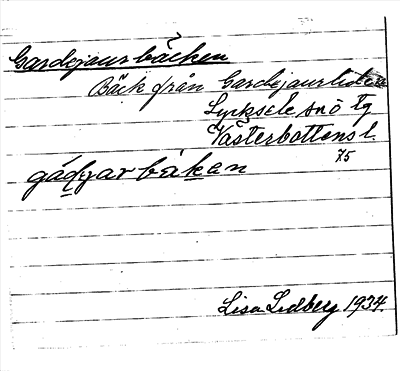 Gardejaurbäcken
Bäck från Gardejaurliden
Lycksele snö tg
Västerbottens l.
75
gádjar bäkan
Lisa Lidberg 1934.